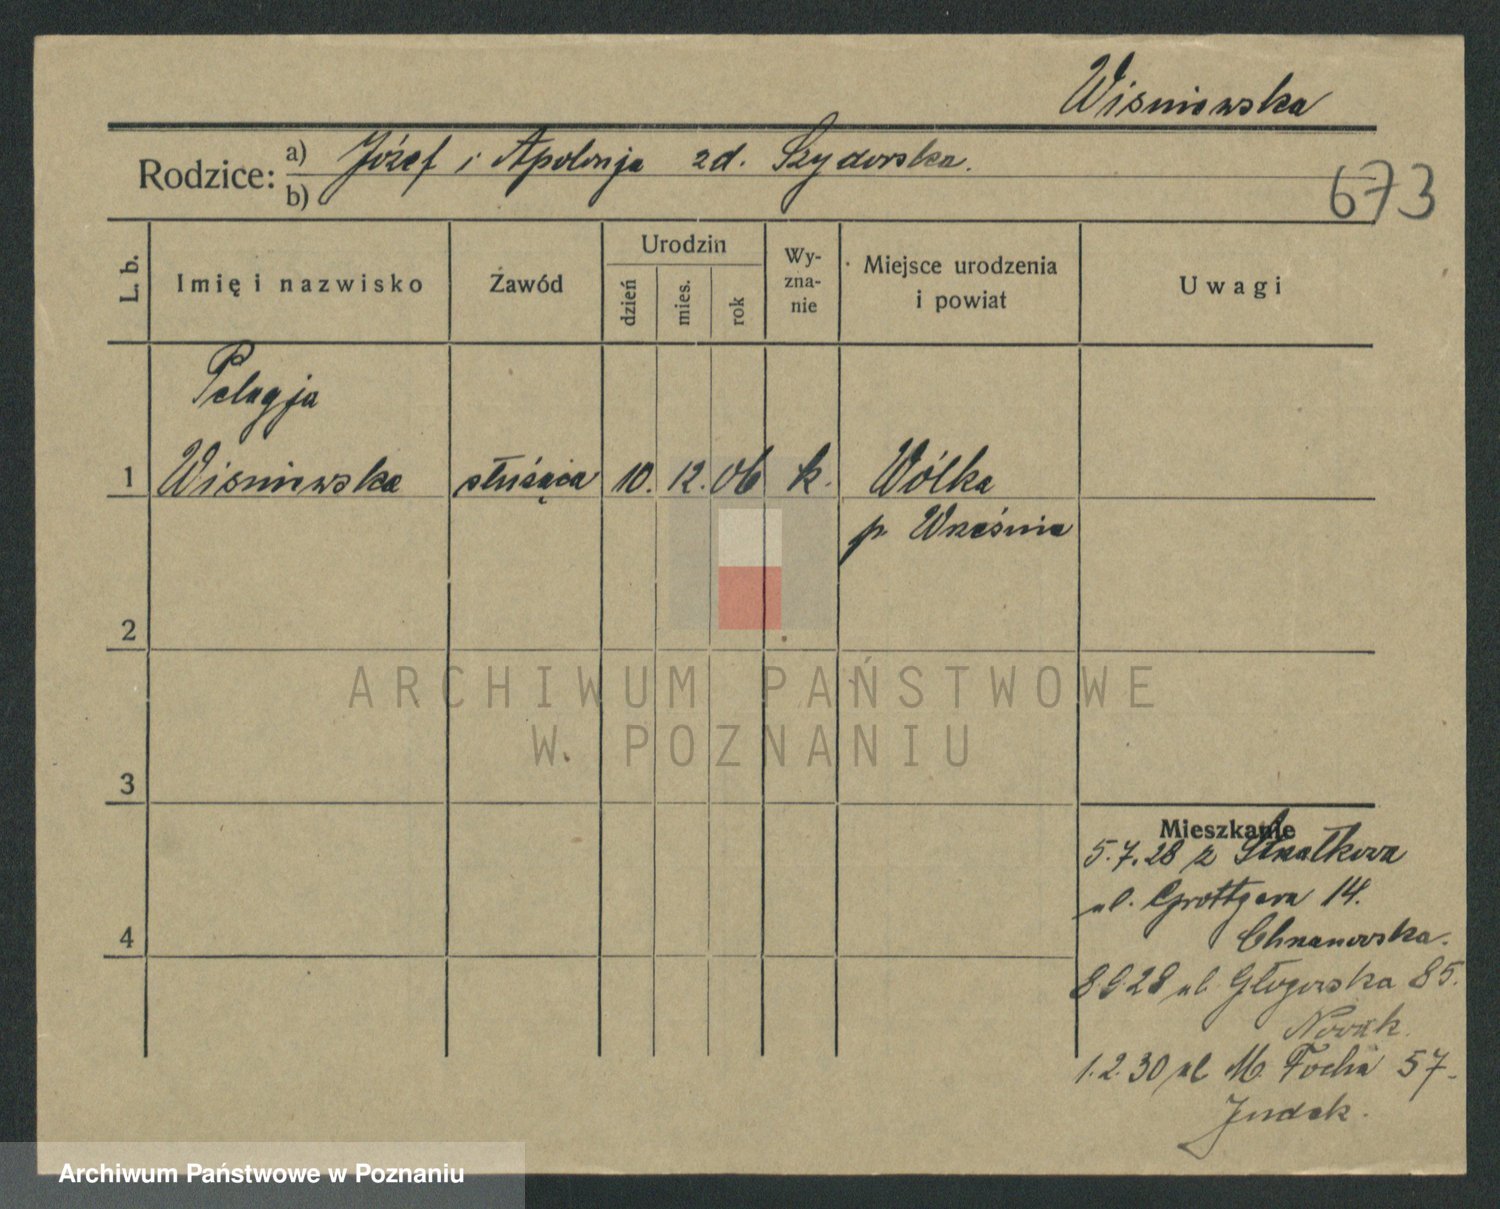 Wisniewska
Rodzice: a) Józef i Apolonja zd. Szydorska.
b)
673
L. b.
Imię i nazwisko
Zawód
Urodzin
dzień
mies.
rok
Wy-
zna-
nie
Miejsce urodzenia
i powiat
Uwagi
Pelagja
1 Wisniewska służąca 10. 12. 06 k. Wólka
p. Września
2
ARCHIWUM PAŃSTWOWE
W POZNANIU
3
Mieszkanie
5.7.28 z Strałkowa
ul. Grottgera 14.
Chrzanowska.
4
8.9.28 ul. Głogowska 85.
Nowak.
1.2.30 ul M. Focha 57.
Judek.
Archiwum Państwowe w Poznaniu